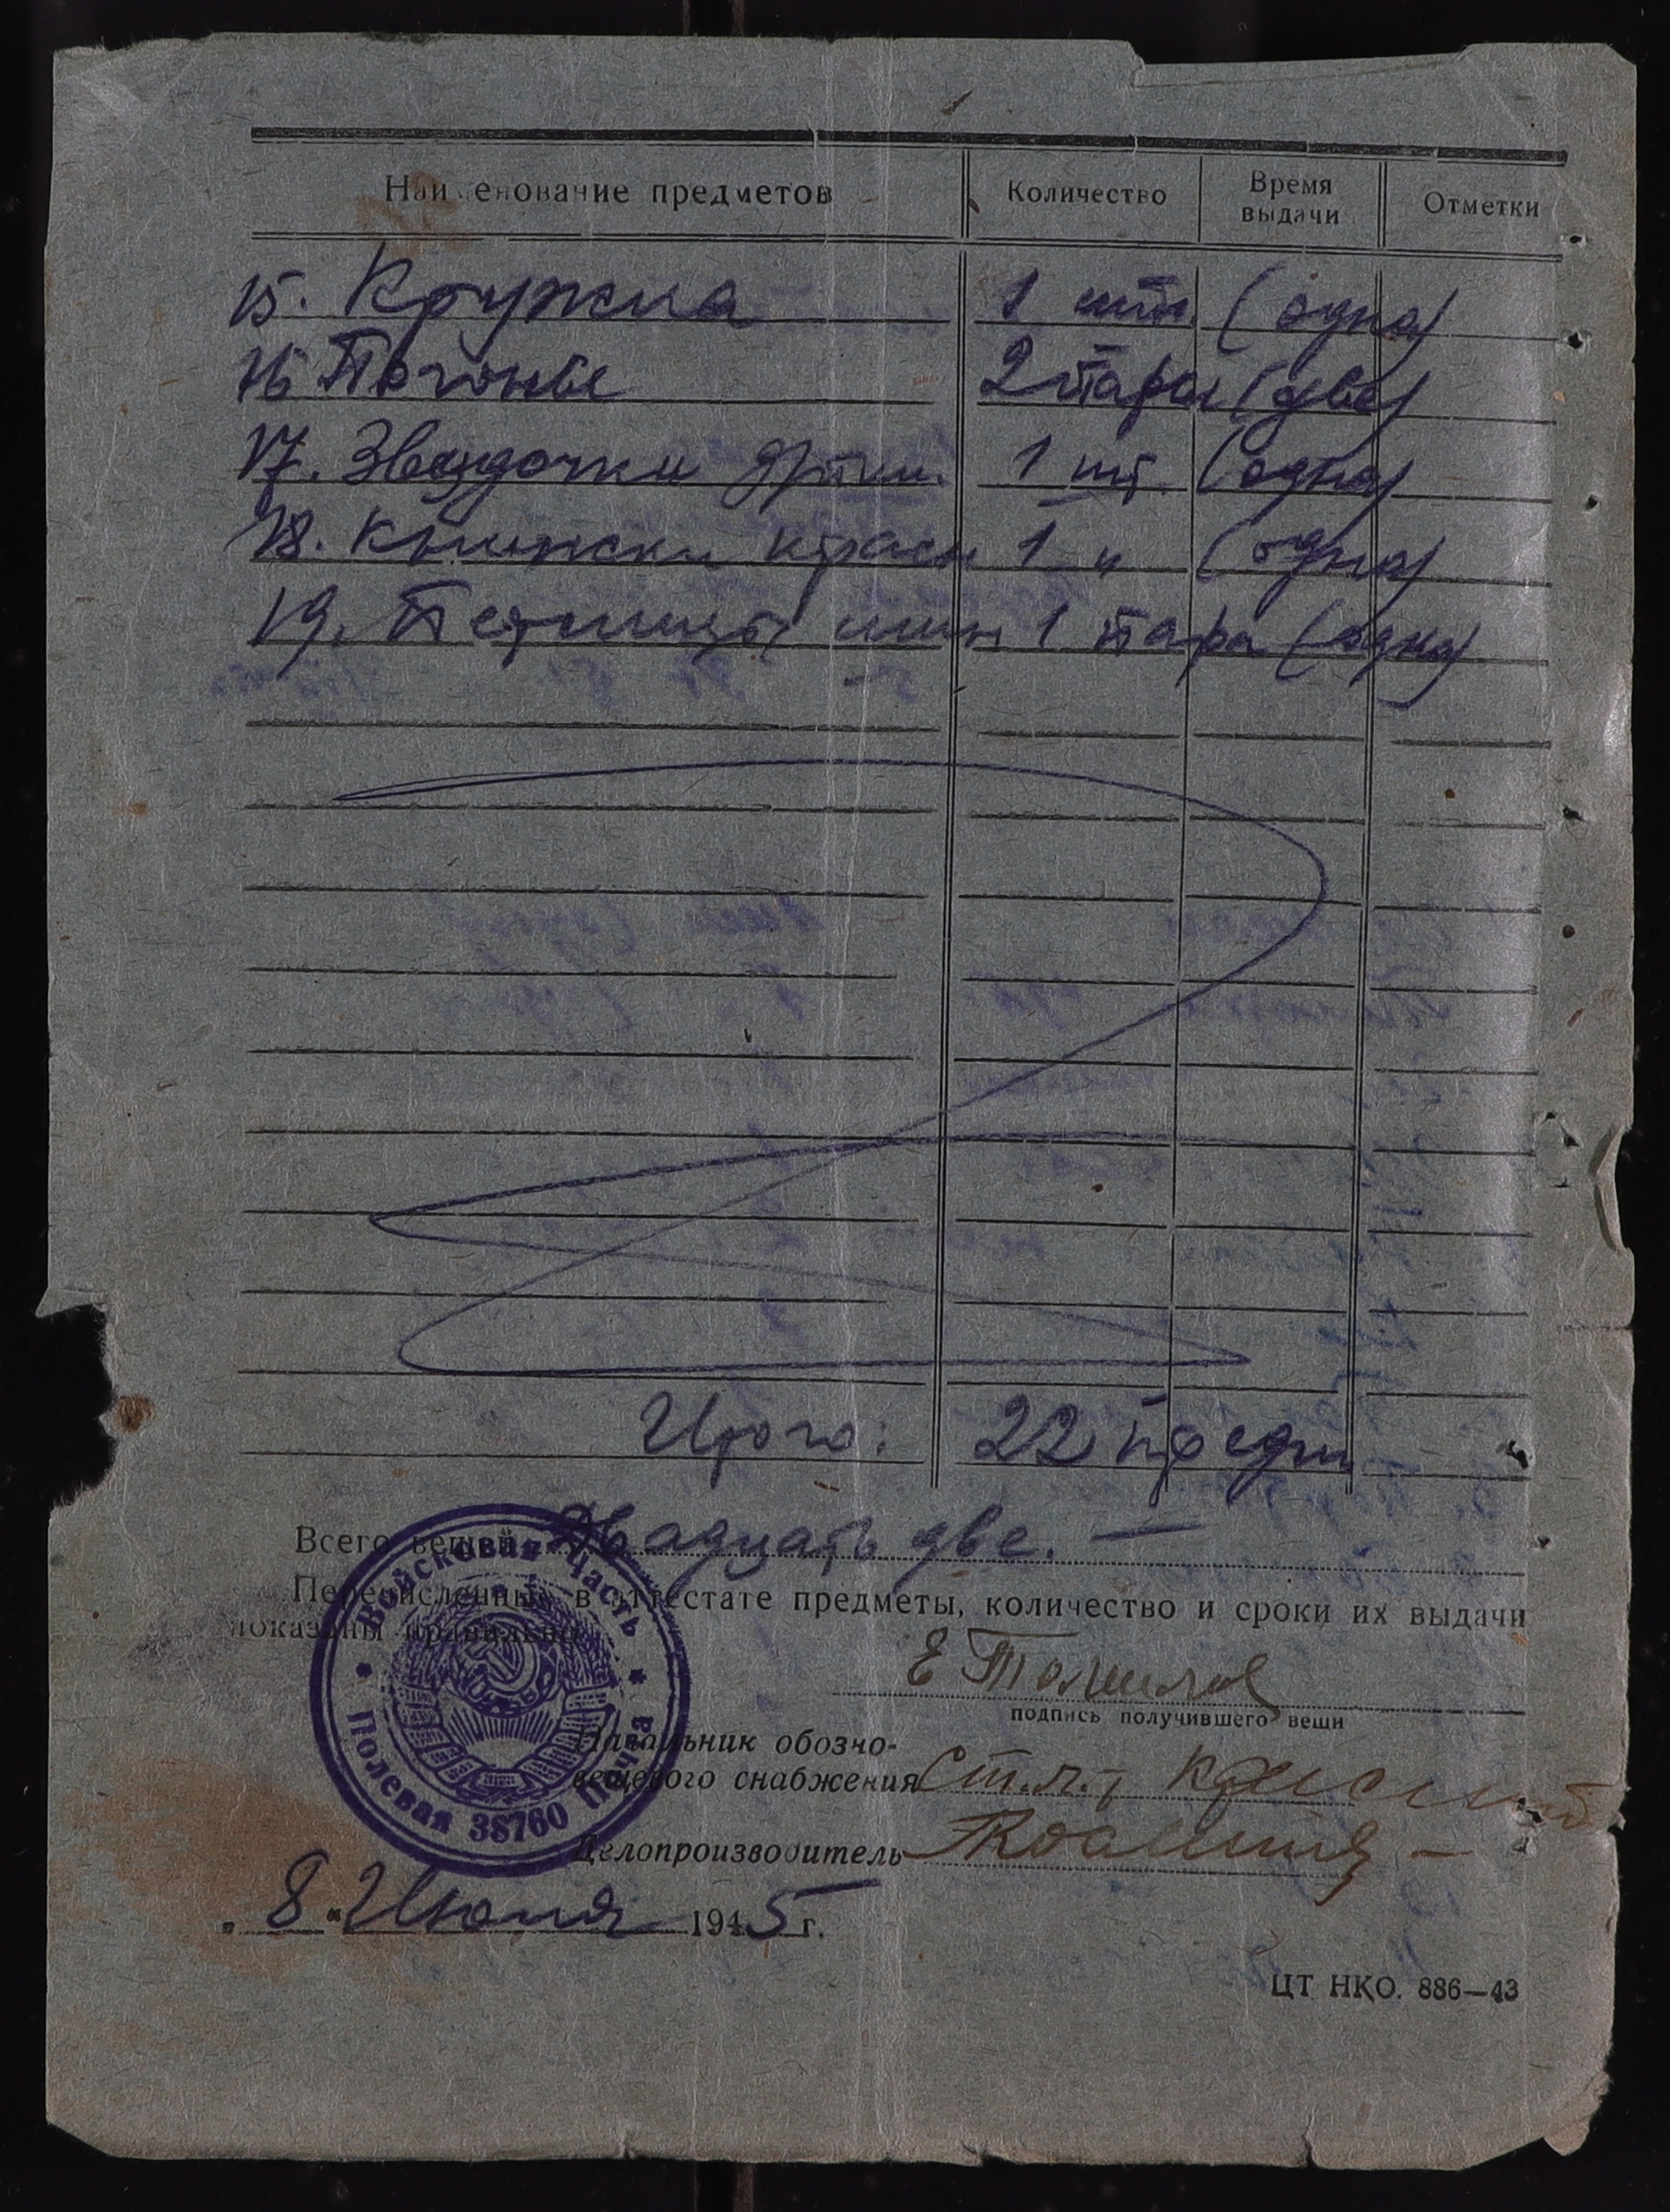 Наименование предметов Количество Время выдачи Отметки
15. Кружка 1 шт. (одна)
16 Погоны 2 пары (две)
17. Звездочки 1 шт. (одна)
18. Книжка красн 1 " (одна)
19. Петлицы шин 1 пара (одна)
Итого: 22 предм
Всего вещей Двадцать две. —
Перечисленные в аттестате предметы, количество и сроки их выдачи
показаны правильно
Е
подпись получившего вещи
Начальник обозно-
вещевого снабжения Ст. л-т
Делопроизводитель
„ 8 “ Июня 1945 г.
Войсковая Часть
Полевая 38760 Почта
ЦТ НКО. 886—43